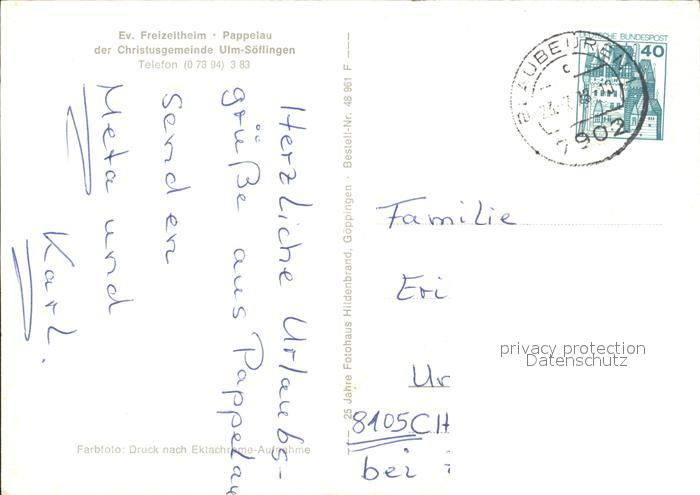 Ev. Freizeitheim · Pappelau
der Christusgemeinde Ulm-Söflingen
Telefon (0 73 94) 3 83
Herzliche Urlaubs-
grüße aus Pappelau
senden
Meta und
Karl.
Farbfoto: Druck nach Ektachrome-Aufnahme
25 Jahre Fotohaus Hildenbrand, Göppingen · Bestell-Nr. 48 961 F
DEUTSCHE BUNDESPOST
40
BLAUBEUREN 1
c
7902
Familie
Eri
Ur
8105 CH
bei
privacy protection
Datenschutz